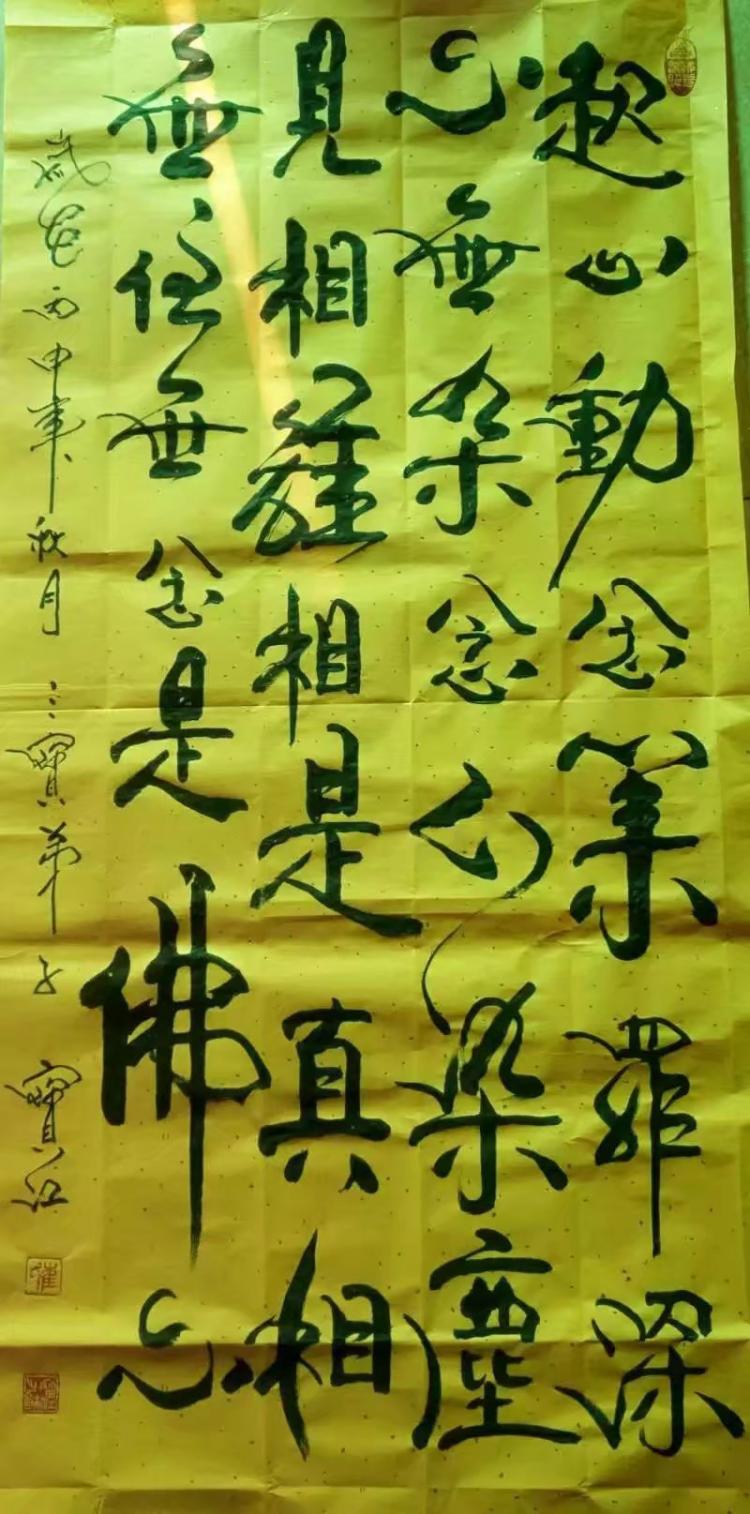 起心動念業罪深
心無染念心染塵
見相離相是真相
無住無念是佛心
歲在丙申年秋月 三寶弟子 寶江